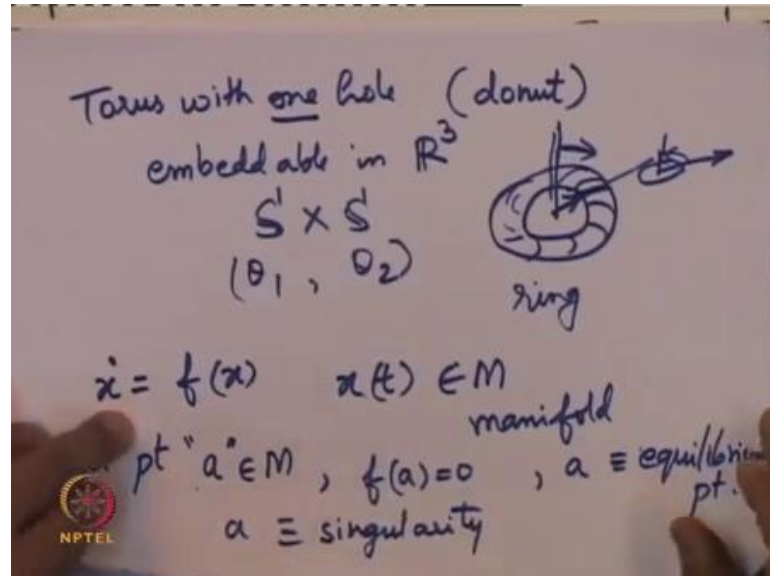 Torus with one hole (donut)
embeddable in R³
S¹ × S¹
(θ₁, θ₂)
ring
ẋ = f(x) x(t) ∈ M
manifold
pt "a" ∈ M, f(a)=0, a ≡ equilibrium
pt.
a ≡ singularity
NPTEL